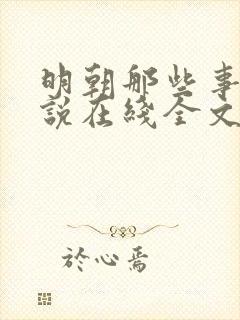 明朝那些事
說在綫全文
於心焉